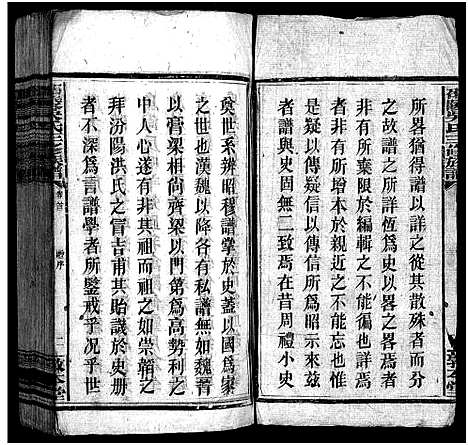 所畧猶得譜以詳之俱其散殊者而分
之故譜之所詳恆爲史以畧之畧焉者
者非有所棄限於編輯之不能徧也詳焉
者非有所增本於親近之不能忘也也
以傳信傳疑以傳信所爲昭示來兹
者譜與史固無二致焉在昔周禮小史
奠世系辨昭穆譜掌於史蓋以國爲家
之世也漢魏以降各有私譜無如魏晋
以膏梁相尚齊梁以門第爲高勢利之
中人心遂有非其祖而祖之如崇韜之
拜汾陽洪氏之冒吉甫其貽譏於史册
者不深爲言譜學者所鑒戒乎況乎世
氏三修族譜
卷首
序